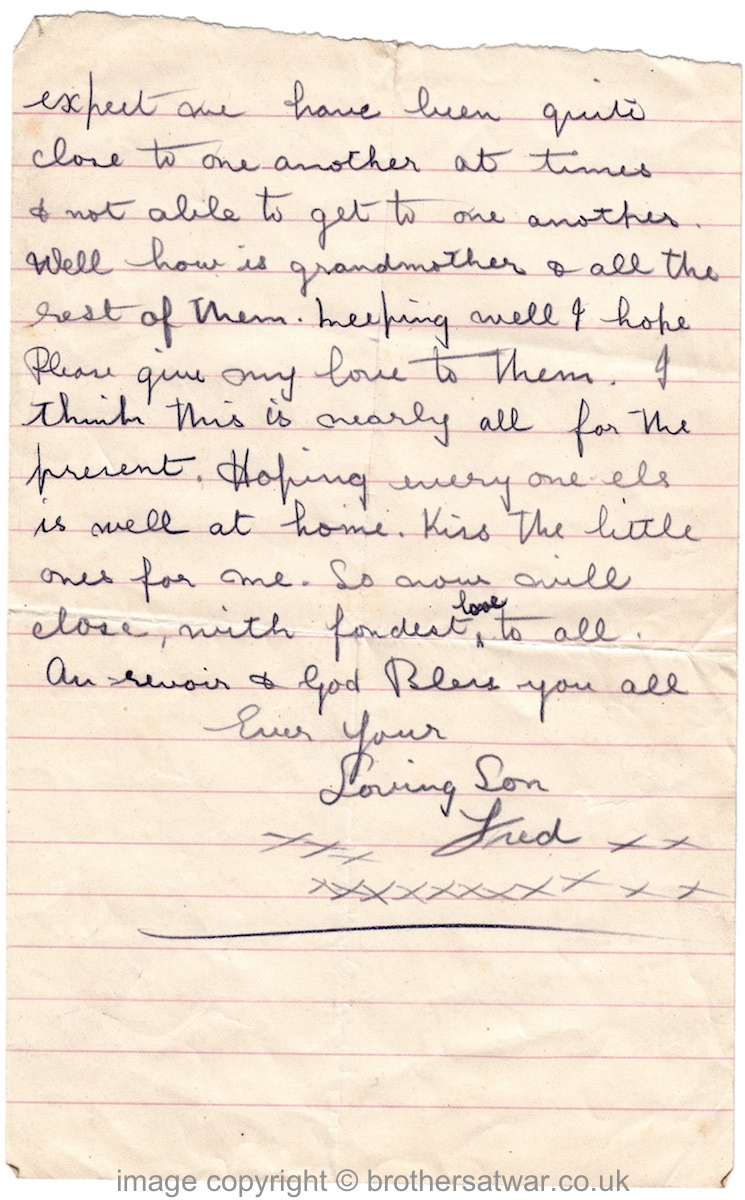 expect we have been quite
close to one another at times
& not able to get to one another.
Well how is grandmother & all the
rest of them. keeping well I hope
Please give my love to them. I
think this is nearly all for the
present. Hoping every one els
is well at home. Kiss the little
ones for me. So now will
close, with fondest love to all.
Au-revoir & God Bless you all
Ever Your
Loving Son
x x x Fred x x
x x x x x x x x x x
image copyright © brothersatwar.co.uk